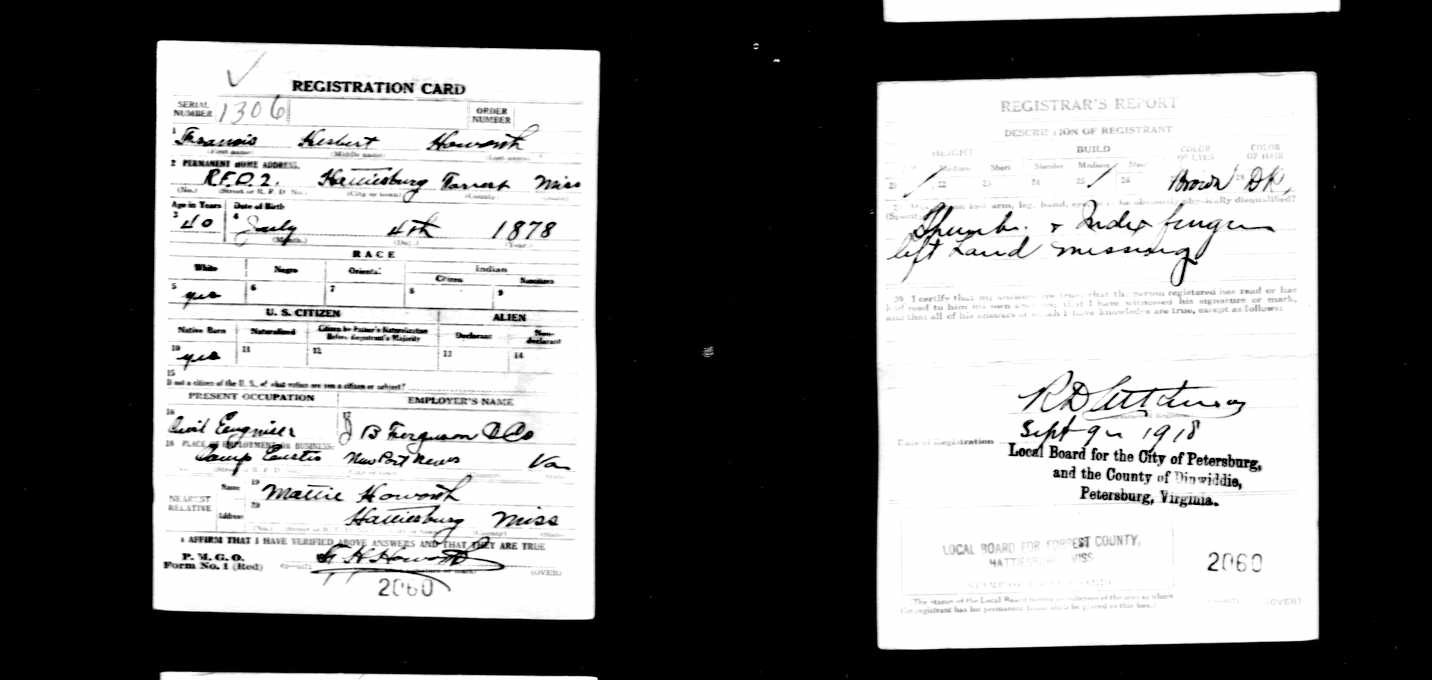 REGISTRATION CARD
SERIAL NUMBER 1306 ORDER NUMBER
1 Francis Herbert Howorth
(First name) (Middle name) (Last name)
2 PERMANENT HOME ADDRESS.
R.F.D. 2. Hattiesburg Forrest Miss
(No.) (Street or R. F. D. No.) (City or town) (County) (State)
Age in Years Date of Birth
3 40 4 July 4th 1878
(Month.) (Day.) (Year.)
RACE
White Negro Oriental Indian
Citizen Noncitizen
5 yes 6 7 8 9
U. S. CITIZEN ALIEN
Native Born Naturalized Citizen by Father's Naturalization Before Registrant's Majority Declarant Non-declarant
10 yes 11 12 13 14
15
If not a citizen of the U. S., of what nation are you a citizen or subject?
PRESENT OCCUPATION EMPLOYER'S NAME
16 Civil Engniser 17 J B Ferguson & Co
18 PLACE OF EMPLOYMENT OR BUSINESS:
Camp Eustis NewPort News Va
NEAREST RELATIVE
Name 19 Mattie Howorth
Address 20 Hattiesburg Miss
I AFFIRM THAT I HAVE VERIFIED ABOVE ANSWERS AND THAT THEY ARE TRUE
P. M. G. O.
Form No. 1 (Red) F H Howorth (OVER)
2060
REGISTRAR'S REPORT
DESCRIPTION OF REGISTRANT
HEIGHT BUILD COLOR OF EYES COLOR OF HAIR
Medium Short Slender Medium Stout
21 / 22 23 24 25 / 26 Brown 28 DK,
29 Has person lost arm, leg, hand, eye, or is he obviously physically disqualified?
(Specify.) Thumb. + Index finger
left hand missing
30 I certify that my answers are true; that the person registered has read or has
had read to him his own answers; that I have witnessed his signature or mark,
and that all of his answers of which I have knowledge are true, except as follows:
Date of Registration Sept 9th 1918
Local Board for the City of Petersburg,
and the County of Dinwiddie,
Petersburg, Virginia.
LOCAL BOARD FOR FORREST COUNTY,
HATTIESBURG, MISS
2060
(The stamp of the Local Board having jurisdiction of the area in which
the registrant has his permanent home shall be placed in this box.)
(OVER)